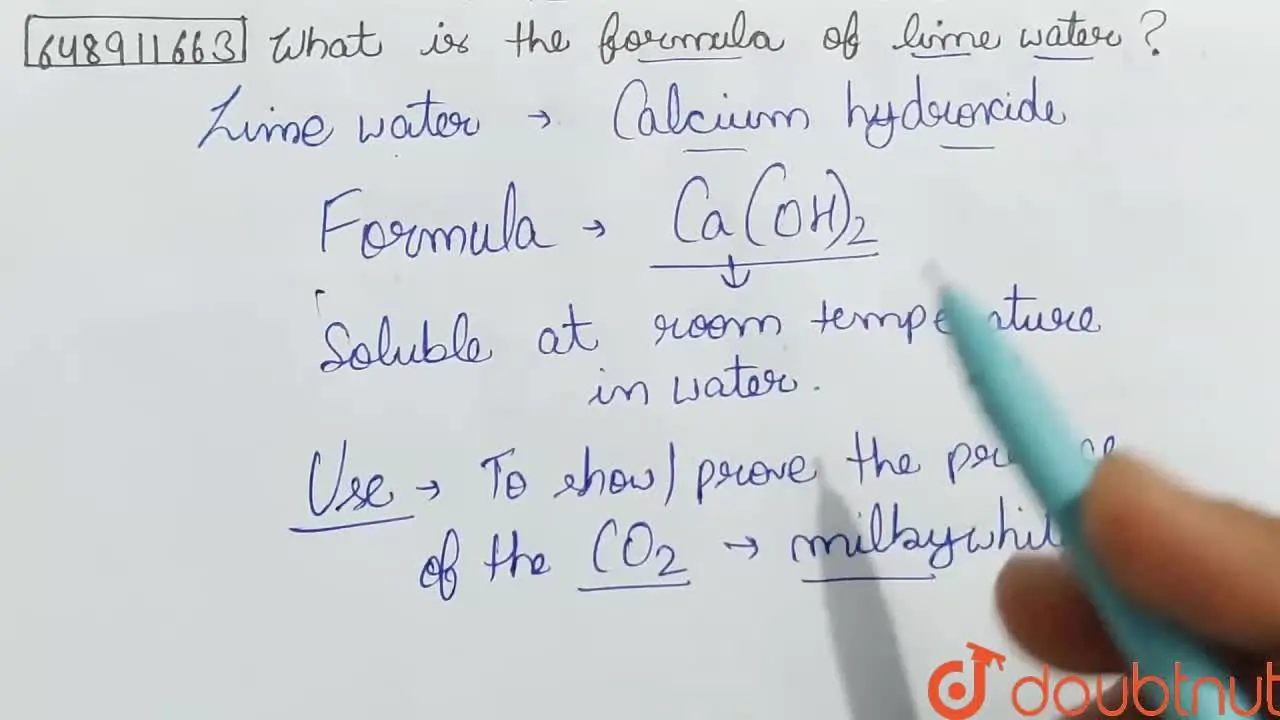 648911663 What is the formula of lime water?
Lime water → Calcium hydroxide
Formula → Ca(OH)2
↓
Soluble at room temperature
in water.
Use → To show/prove the
of the CO2 → milky
doubtnut